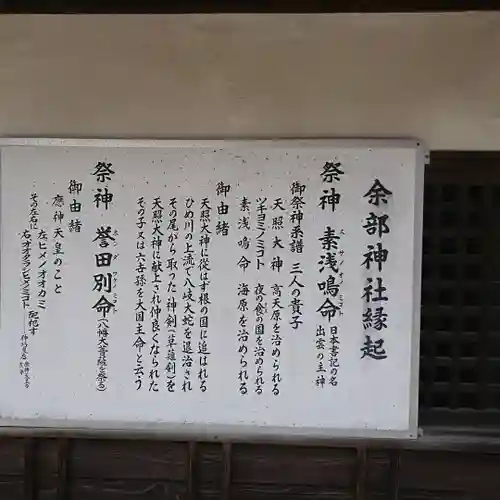 余部神社縁起
祭神 素浅鳴命 日本書記の名
スサノオノミコト 出雲の主神
御祭神系譜 三人の貴子
天照大神 高天原を治められる
ツキヨミノミコト 夜の食の国を治められる
素浅鳴命 海原を治められる
御由緒
天照大神に從はず根の国に追はれる
ひめ川の上流で八岐大蛇を退治され
その尾から取った神剣(草薙剣)を
天照大神に献上され仲良くなられた
その子又は六古孫を大国主命と云う
祭神 誉田別命(八幡大菩薩を祭る)
ホンダワケノミコト
御由緒
應神天皇のこと
左、ヒメノオオカミ 配祀す
その左右に
右、オオタラシヒメノミコト